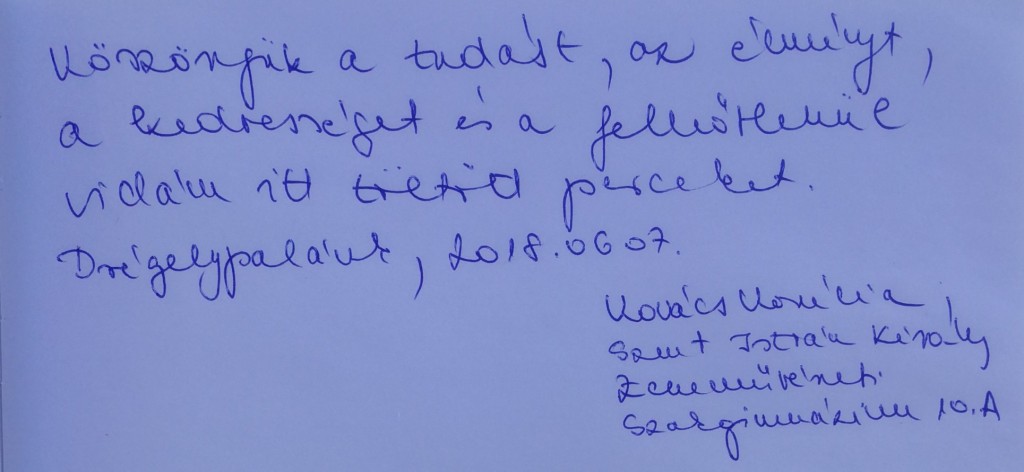 Köszönjük a tudást, az élményt,
a kedvességet és a felhőtlenül
vidám itt töltött perceket.
Drégelypalánk, 2018.06 07.
Kovács Kornélia,
Szent István Király
Zeneművészeti
Szakgimnázium 10.A